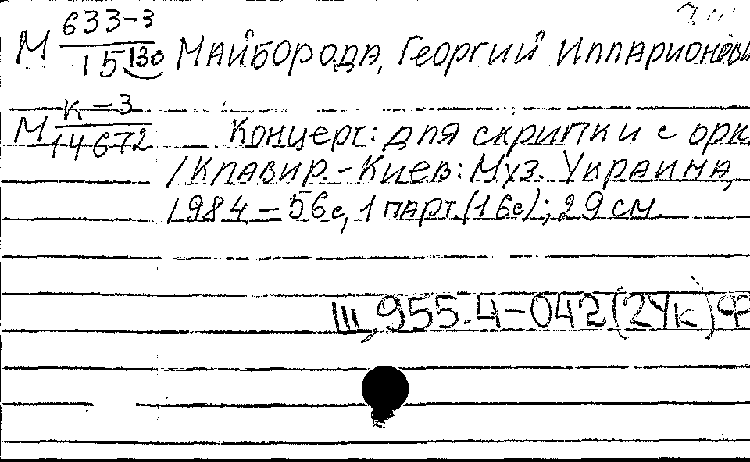 М 633-3
15130 Майборода, Георгий Илларионович
М К-3
14672 Концерт: для скрипки с орк.
/Клавир.- Киев: Муз. Украина,
1984 - 56с, 1 парт.(16с); 29 см.
III, 955.4-042(2Ук)Ф